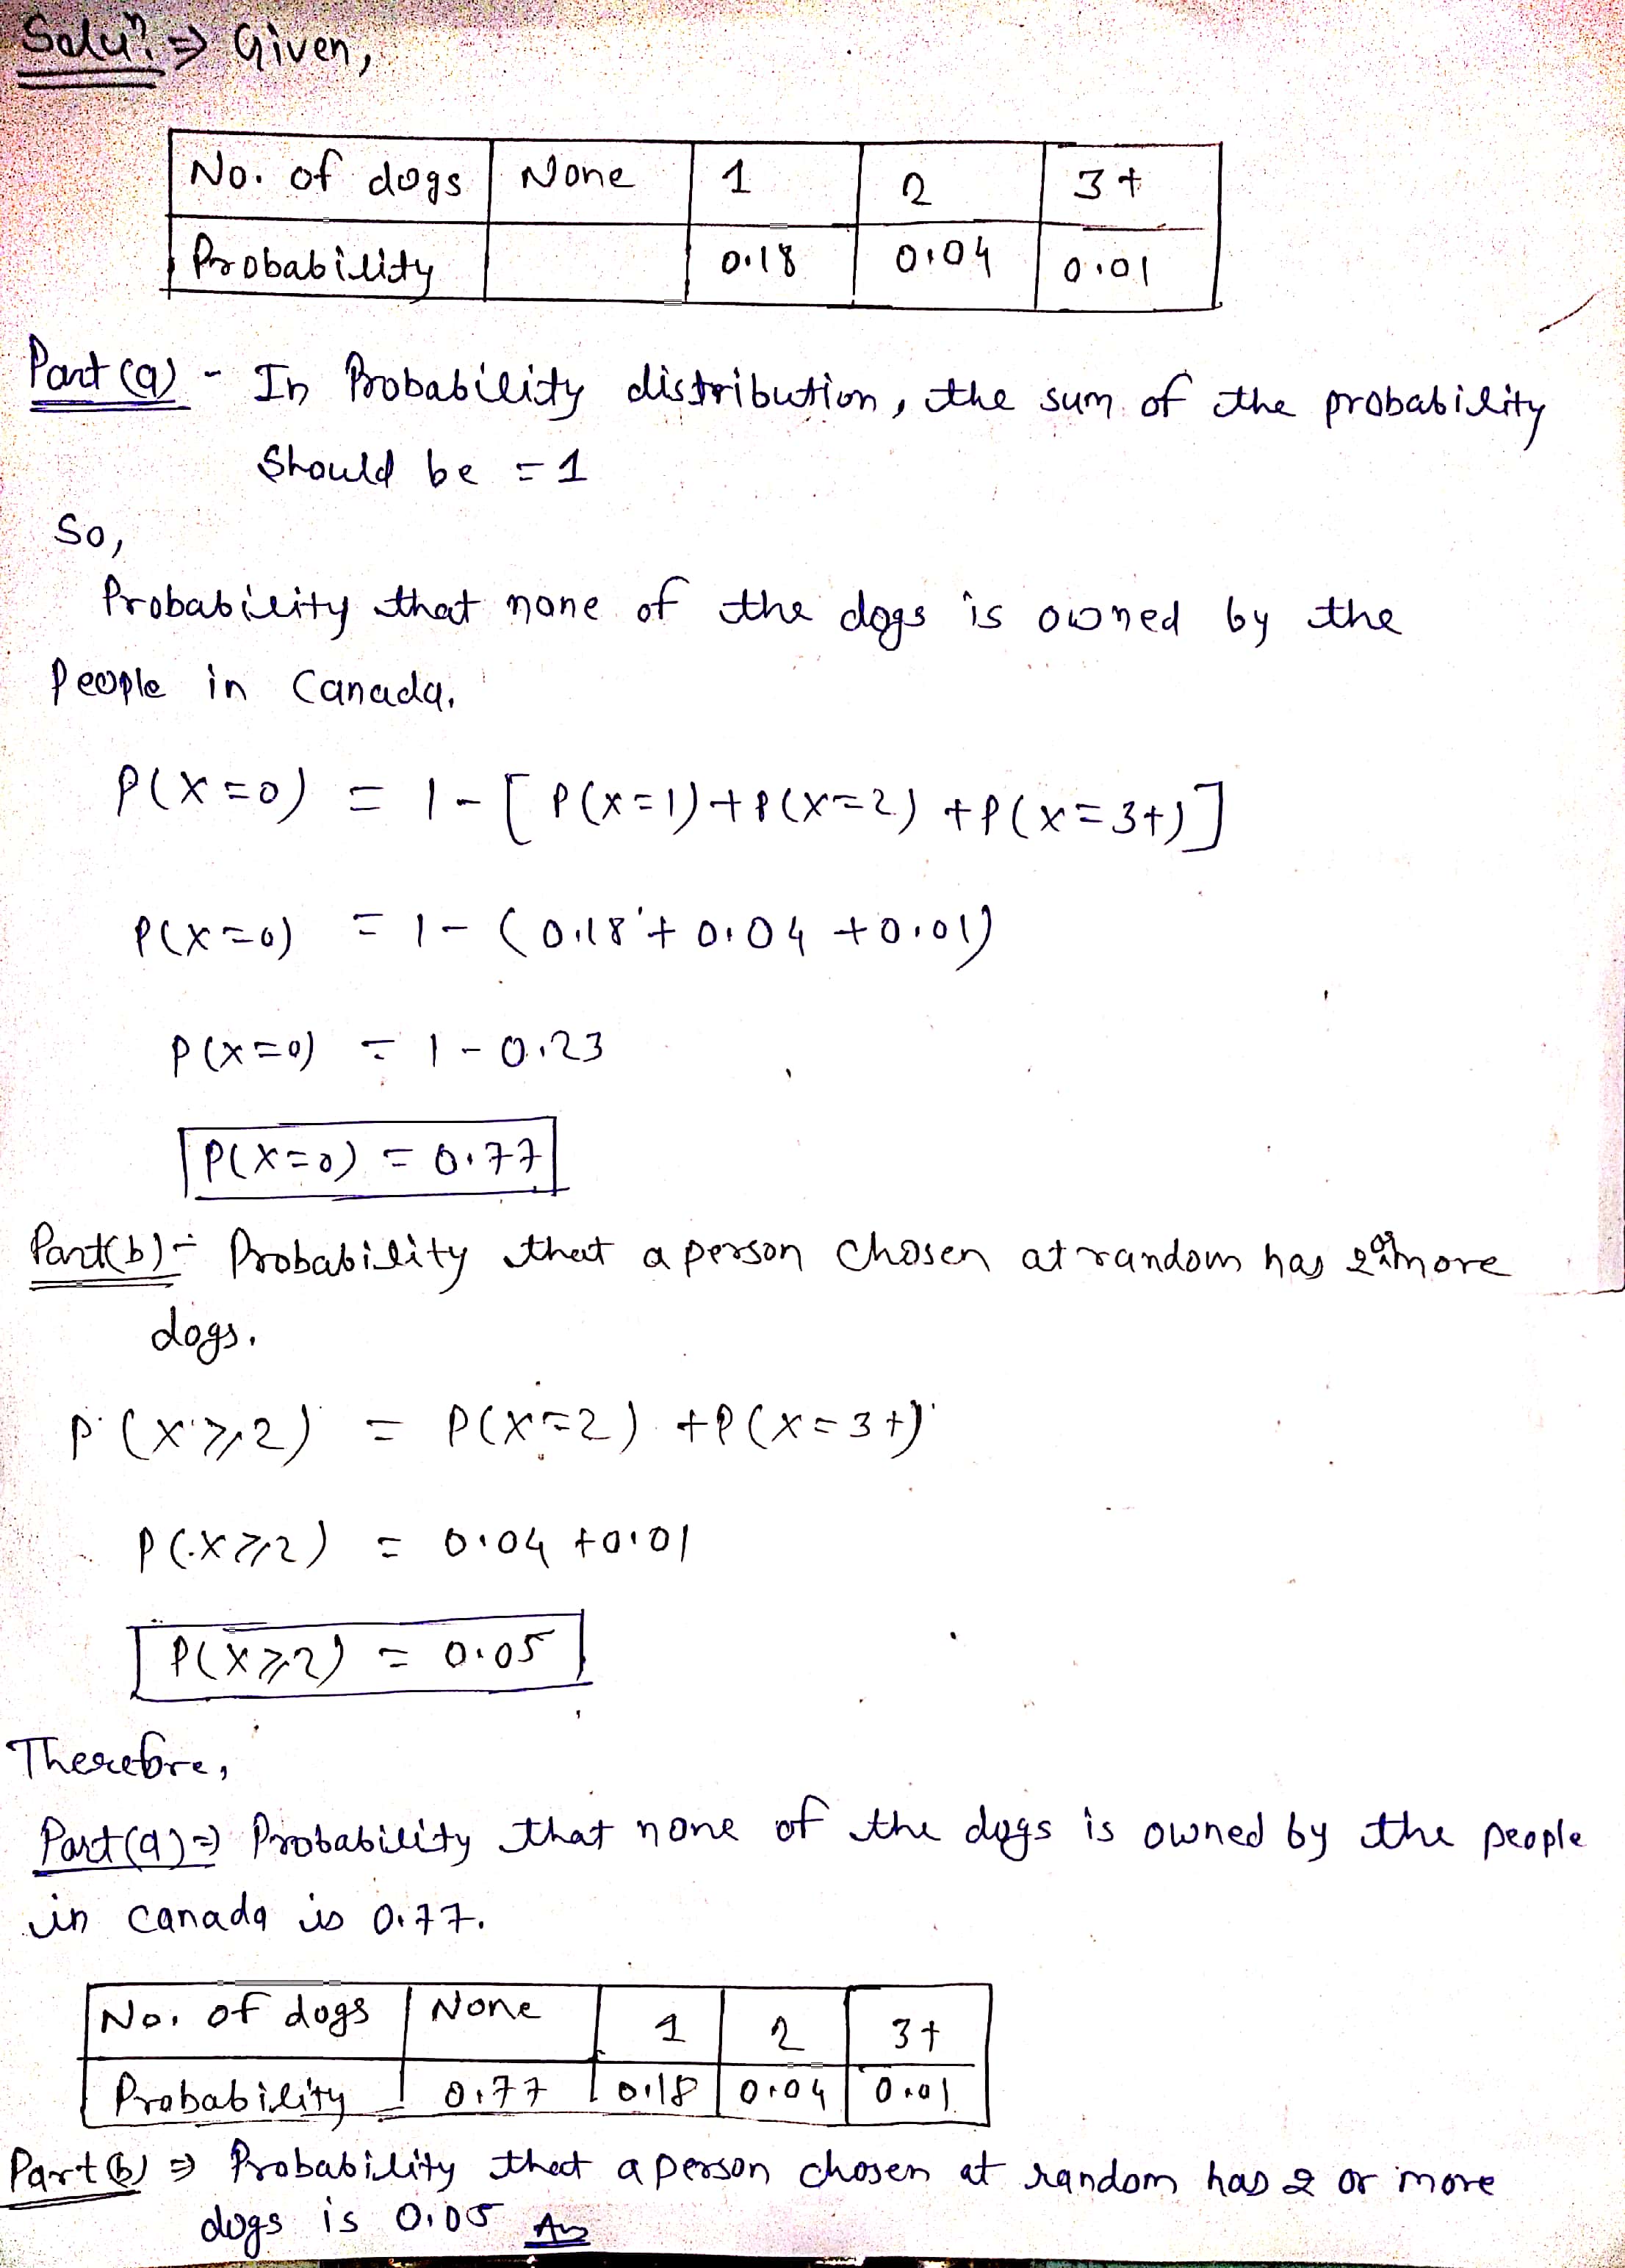 Soluⁿ. ⇒ Given,
No. of dogs None 1 2 3+
Probability 0.18 0.04 0.01
Part (a) - In Probability distribution, the sum of the probability
Should be = 1
So,
Probability that none of the dogs is owned by the
People in Canada.
P(X=0) = 1 - [P(X=1)+P(X=2)+P(X=3+)]
P(X=0) = 1 - (0.18+0.04+0.01)
P(X=0) = 1 - 0.23
P(X=0) = 0.77
Part(b) - Probability that a person chosen at random has 2 or more
dogs.
P(X⩾2) = P(X=2)+P(X=3+)
P(X⩾2) = 0.04+0.01
P(X⩾2) = 0.05
Therefore,
Part(a) ⇒ Probability that none of the dogs is owned by the people
in canada is 0.77.
No. of dogs None 1 2 3+
Probability 0.77 0.18 0.04 0.01
Part(b) ⇒ Probability that a person chosen at random has 2 or more
dogs is 0.05 Ans